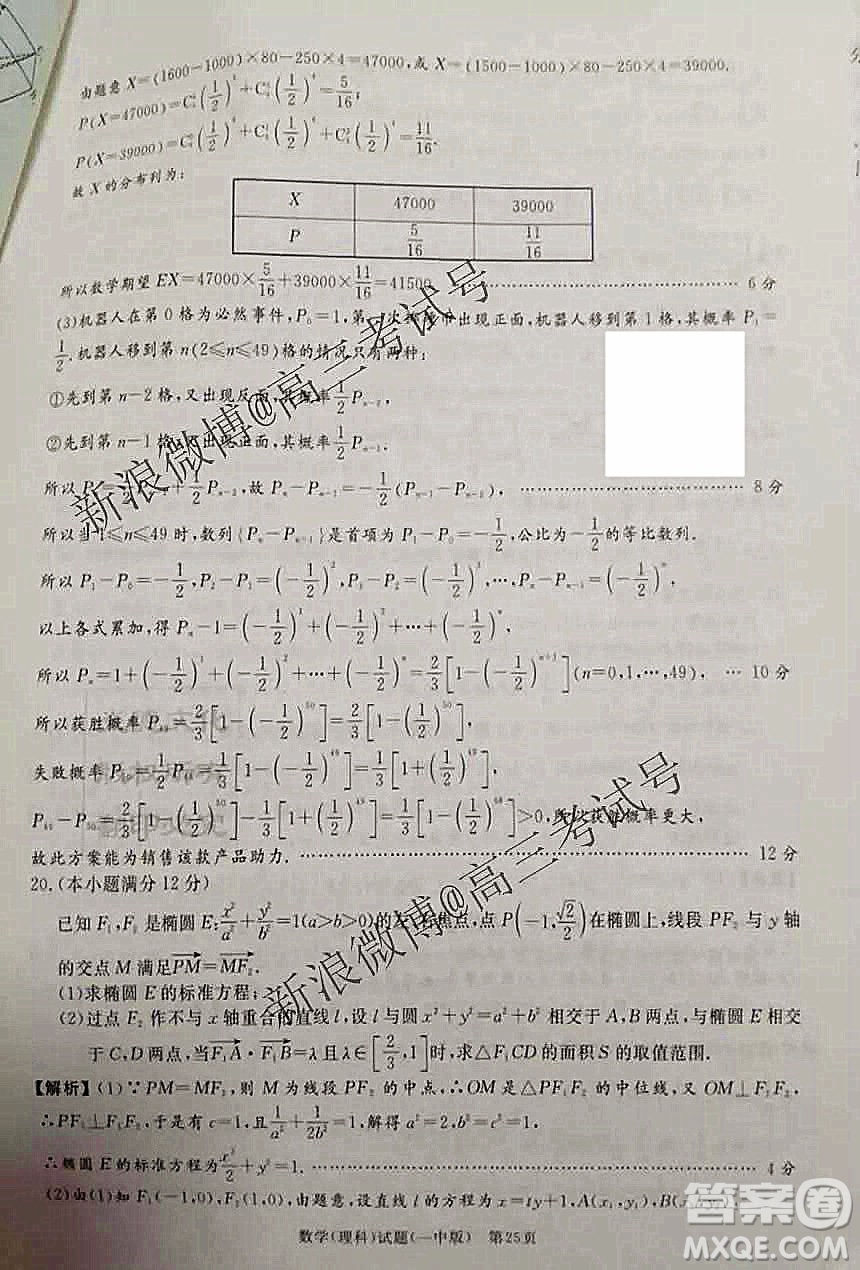 由题意 X=(1600-1000)×80-250×4=47000,或 X=(1500-1000)×80-250×4=39000.
P(X=47000)=C₄⁰(1/2)⁴+C₄¹(1/2)⁴=5/16,
故 X 的分布列为:
X 47000 39000
P 5/16 11/16
所以数学期望 EX=47000×5/16+39000×11/16=41500. …… 6 分
(3)机器人在第 0 格为必然事件,P₀=1,第一次 出现正面,机器人移到第 1 格,其概率 P₁=
1/2.机器人移到第 n(2≤n≤49)格的情况只有两种:
①先到第 n-2 格,又出现反面,其概率 1/2 Pₙ₋₂,
②先到第 n-1 格,又出现正面,其概率 1/2 Pₙ₋₁.
所以 Pₙ₋₂,故 Pₙ-Pₙ₋₁=-1/2(Pₙ₋₁-Pₙ₋₂), …… 8 分
所以当 1≤n≤49 时,数列{Pₙ-Pₙ₋₁}是首项为 P₁-P₀=-1/2,公比为-1/2 的等比数列.
所以 P₁-P₀=-1/2,P₂-P₁=(-1/2)²,P₃-P₂=(-1/2)³,…,Pₙ-Pₙ₋₁=(-1/2)ⁿ,
以上各式累加,得 Pₙ-1=(-1/2)¹+(-1/2)²+…+(-1/2)ⁿ,
所以 Pₙ=1+(-1/2)¹+(-1/2)²+…+(-1/2)ⁿ=2/3[1-(-1/2)ⁿ⁺¹](n=0,1,…,49), … 10 分
所以获胜概率 P₄₉=2/3[1-(-1/2)⁵⁰]=2/3[1-(1/2)⁵⁰],
失败概率
>0,所以获胜概率更大,
故此方案能为销售该款产品助力. …… 12 分
20.(本小题满分 12 分)
已知 F₁,F₂ 是椭圆 E:x²/a²+y²/b²=1(a>b>0)的左、右焦点,点 P(-1,√2/2)在椭圆上,线段 PF₂ 与 y 轴
的交点 M 满足PM=MF₂.
(1)求椭圆 E 的标准方程;
(2)过点 F₂ 作不与 x 轴重合的直线 l,设 l 与圆 x²+y²=a²+b² 相交于 A,B 两点,与椭圆 E 相交
于 C,D 两点,当F₁A·F₁B=λ 且 λ∈[2/3,1]时,求△F₁CD 的面积 S 的取值范围.
【解析】(1)∵PM=MF₂,则 M 为线段 PF₂ 的中点,∴OM 是△PF₁F₂ 的中位线,又 OM⊥F₁F₂,
∴PF₁⊥F₁F₂,于是有 c=1,且1/a²+1/2b²=1,解得 a²=2,b²=c²=1.
∴椭圆 E 的标准方程为x²/2+y²=1. …… 4 分
(2)由(1)知 F₁(-1,0),F₂(1,0),由题意,设直线 l 的方程为 x=ty+1,A(x₁,y₁),B(x₂,y₂),
数学(理科)试题(一中版) 第25页
新浪微博@高三考试号
新浪微博@高三考试号
答案圈
MXQE.COM